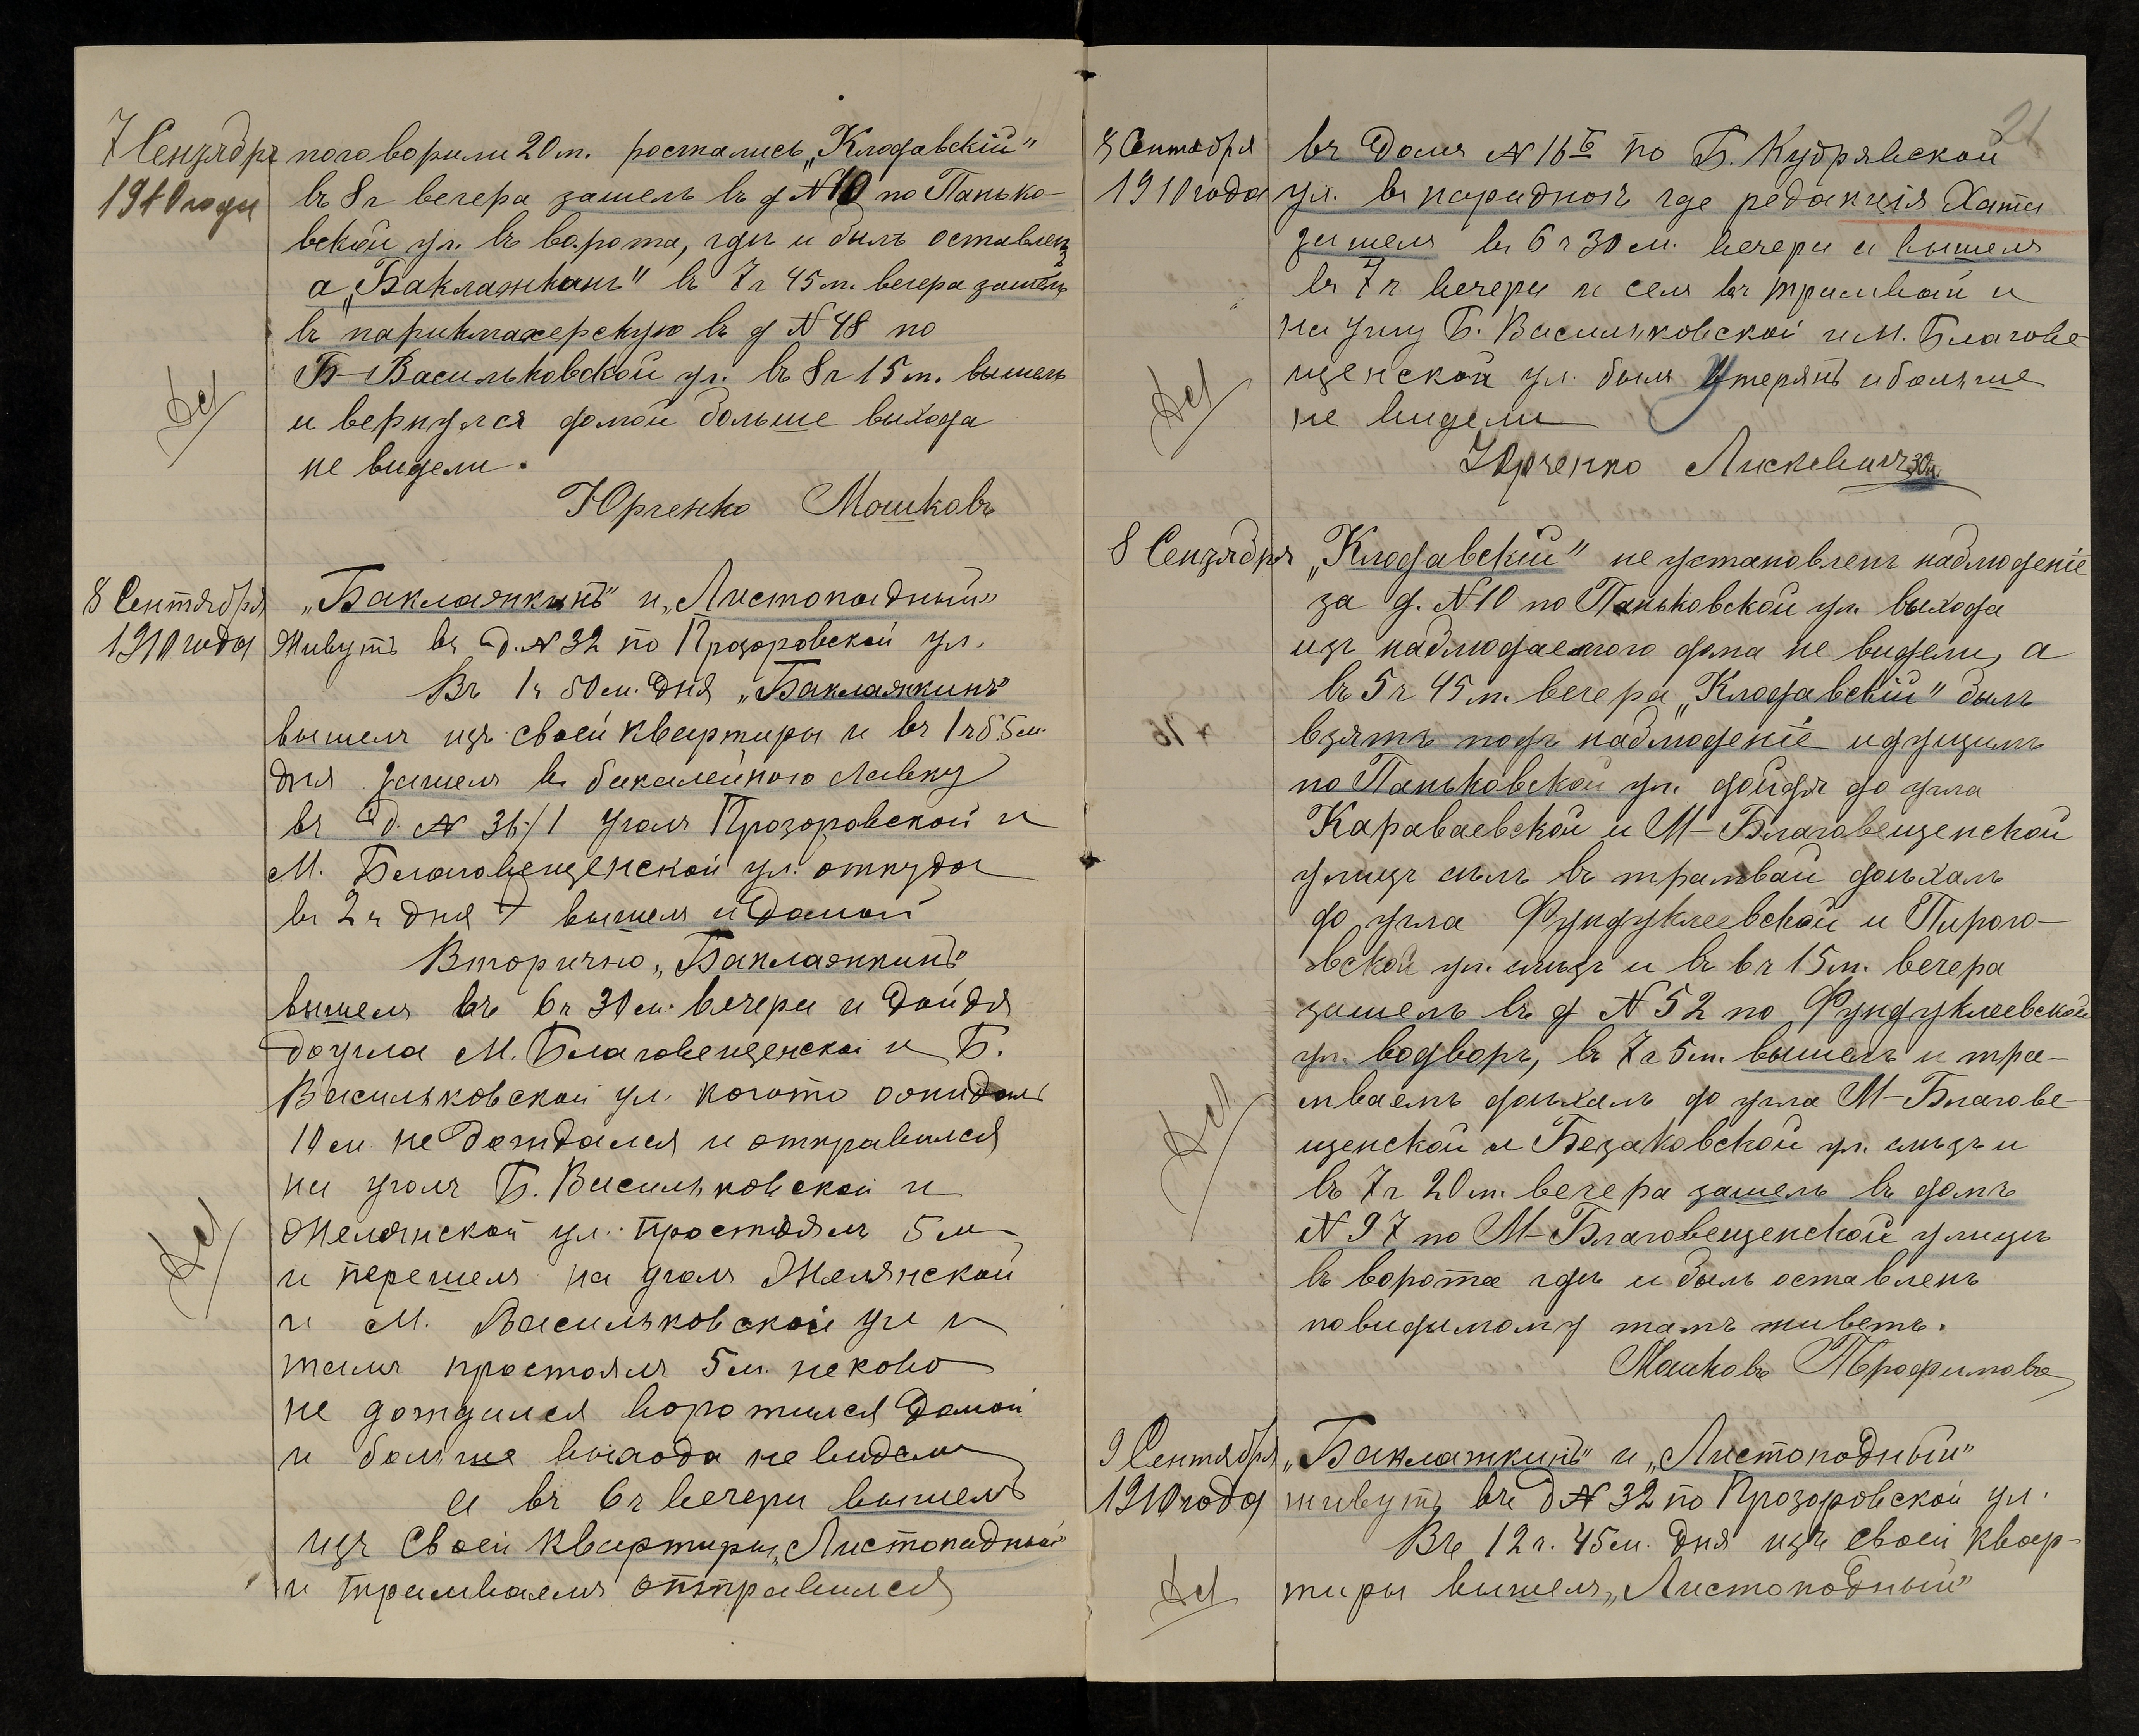 7 Сентября
1910 года
поговорили 20 м. ростались „Клодавскій"
въ 8 ч вечера зашелъ въ д № 10 по Панько-
вской ул. въ ворота, гдѣ и былъ оставленъ
а „Баклажкинъ" въ 7 ч 45 м. вечера зашелъ
въ парикмахерскую въ д № 48 по
Б-Васильковской ул. въ 8 ч 15 м. вышелъ
и вернулся домой больше выхода
не видели.
Юрченко Мошковъ
8 Сентября
1910 года
„Баклажкинъ" и „Листопадный"
Живутъ въ д. № 32 по Прозоровской ул.
Въ 1 ч 50 м. дня „Баклажкинъ"
вышелъ изъ своей квартиры и въ 1 ч 55 м.
дня зашелъ в бакалейною лавку
въ д. № 36/1 уголъ Прозоровской и
М. Благовещенской ул. откуда
въ 2 ч дня вышелъ и домой
Вторично „Баклажкинъ"
вышелъ въ 6 ч 30 м. вечера и дойдя
до угла М. Благовещенской и Б.
Васильковской ул. когото ожидалъ
10 м. не дождался и отправился
на уголъ Б. Васильковской и
Желянской ул. простоялъ 5 м
и перешелъ на уголъ Желянской
и М. Васильковской ул и
тамъ простоялъ 5 м. неково
не дождался воротился домой
и больше выхода не видели
а въ 6 ч вечера вышелъ
изъ своей квартиры „Листопадный"
и трамваемъ отправился
21
8 Сентября
1910 года
въ домъ № 16 б по Б. Кудрявской
ул. въ парадное где редакція Хата
зашелъ въ 6 ч 30 м. вечера и вышелъ
въ 7 ч вечера и селъ въ трамвай и
на углу Б. Васильковской и М. Благове
щенской ул. былъ утерянъ и больше
не видели
Юрченко Лискевич
8 Сентября
„Клодавский" не установленъ наблюденіе
за д. № 10 по Паньковской ул. выхода
изъ наблюдаемого дома не видели, а
въ 5 ч 45 м. вечера „Клодавскій" былъ
взятъ подъ наблюденіе идущимъ
по Паньковской ул. дойдя до угла
Караваевской и М-Благовещенской
улицъ сѣлъ въ трамвай доѣхалъ
до угла Фундуклеевской и Пирого-
вской ул. слѣзъ и въ 6 ч 15 м. вечера
зашелъ въ д № 52 по Фундуклеевской
ул. водворъ, въ 7 ч 5 м. вышелъ и тра-
мваемъ доѣхалъ до угла М-Благове-
щенской и Безаковской ул. слѣзъ и
въ 7 ч 20 м. вечера зашелъ въ домъ
№ 97 по М-Благовещенской улицѣ
въ ворота гдѣ и былъ оставленъ
повидимому тамъ живетъ.
Мошковъ Трофимовъ
9 Сентября
1910 года
„Баклажкинъ" и „Листопадный"
живутъ въ д № 32 по Прозоровской ул.
Въ 12 ч. 45 м. дня изъ своей квар-
тиры вышелъ „Листопадный"